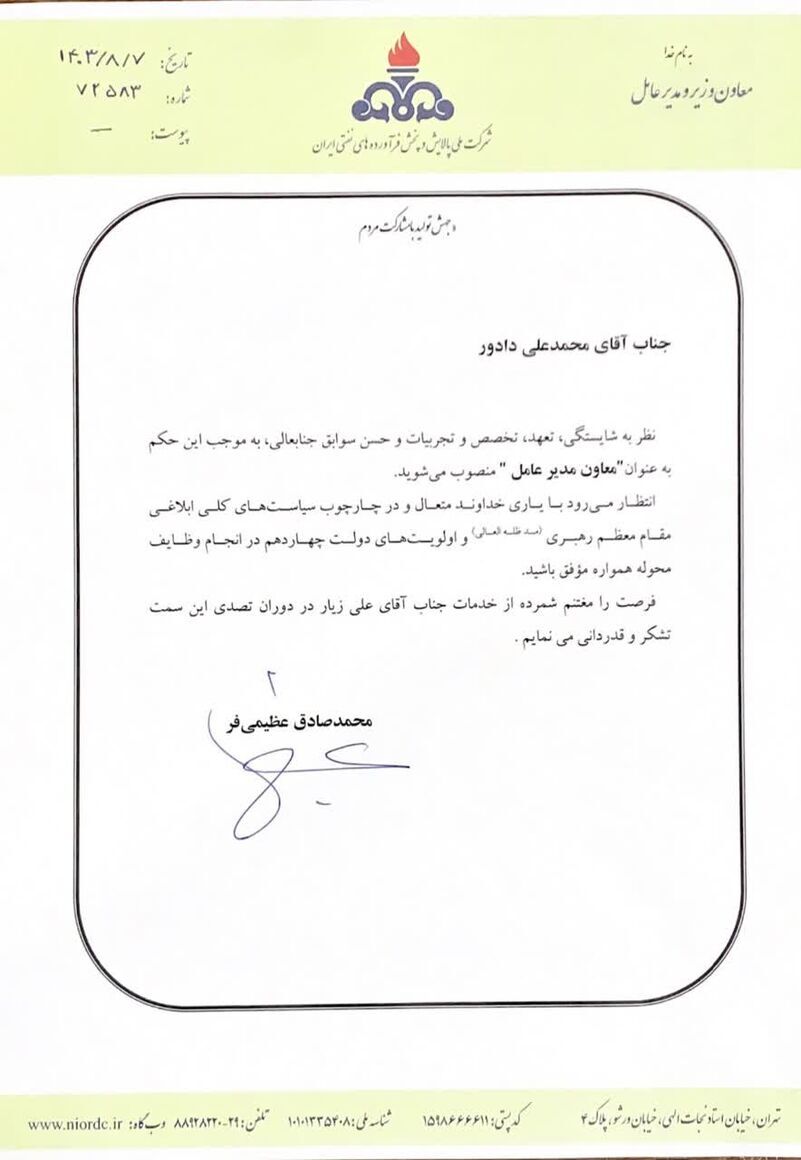 به نام خدا
معاون وزیر و مدیر عامل
شرکت ملی پالایش و پخش فرآورده های نفتی ایران
تاریخ: ۱۴۰۳/۸/۷
شماره: ۷۲۵۸۳
پیوست: —
«جهش تولید با مشارکت مردم»
جناب آقای محمدعلی دادور
نظر به شایستگی، تعهد، تخصص و تجربیات و حسن سوابق جنابعالی، به موجب این حکم
به عنوان "معاون مدیر عامل " منصوب می‌شوید.
انتظار می‌رود با یاری خداوند متعال و در چارچوب سیاست‌های کلی ابلاغی
مقام معظم رهبری (مد ظله العالی) و اولویت‌های دولت چهاردهم در انجام وظایف
محوله همواره مؤفق باشید.
فرصت را مغتنم شمرده از خدمات جناب آقای علی زیار در دوران تصدی این سمت
تشکر و قدردانی می نمایم .
محمدصادق عظیمی‌فر
تهران، خیابان استاد نجات الهی، خیابان ورشو، پلاک ۴ کد پستی: ۱۵۹۸۶۶۶۶۱۱ شناسه ملی: ۱۰۱۰۱۳۳۵۴۰۸ تلفن: ۲۹-۸۸۹۲۸۲۲۰ وب گاه: www.niordc.ir